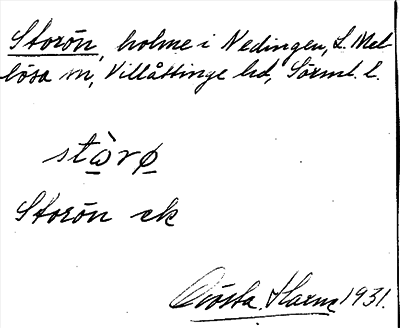 Storön, holme i Nedingen, L. Mel-
lösa sn, Villåttinge hd, Sörml. l.
stὼrø
Storön ek
Gösta Harne 1931.